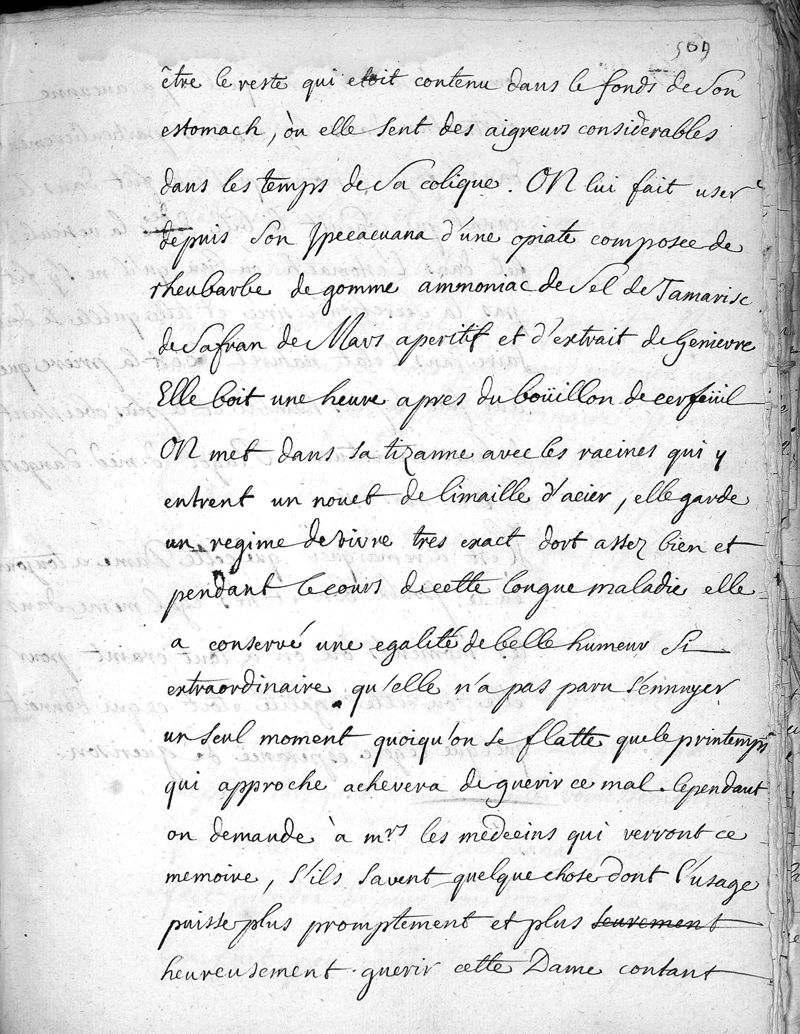 509
être le reste qui etoit contenu dans le fonds de son
estomach, où elle sent des aigreurs considerables
dans les temps de sa colique. ON lui fait user
depuis son Ypecacuana d'une opiate composée de
rheubarbe de gomme ammoniac de Sel de Tamarisc
de Safran de Mars aperitif et d'extrait de Genievre
Elle boit une heure apres du boüillon de cerfeüil
ON met dans sa tizanne avec les racines qui y
entrent un nouet de limaille d'acier, elle garde
un regime de vivre tres exact dort assez bien et
pendant le cours de cette longue maladie elle
a conservé une egalité de belle humeur si
extraordinaire qu'elle n'a pas paru s'ennuyer
un seul moment quoiqu'on se flatte que le printemps
qui approche achevera de guerir ce mal. Cependant
on demande à mrs les medecins qui verront ce
memoire, s'ils savent quelque chose dont l'usage
puisse plus promptement et plus seurement
heureusement guerir cette Dame contant